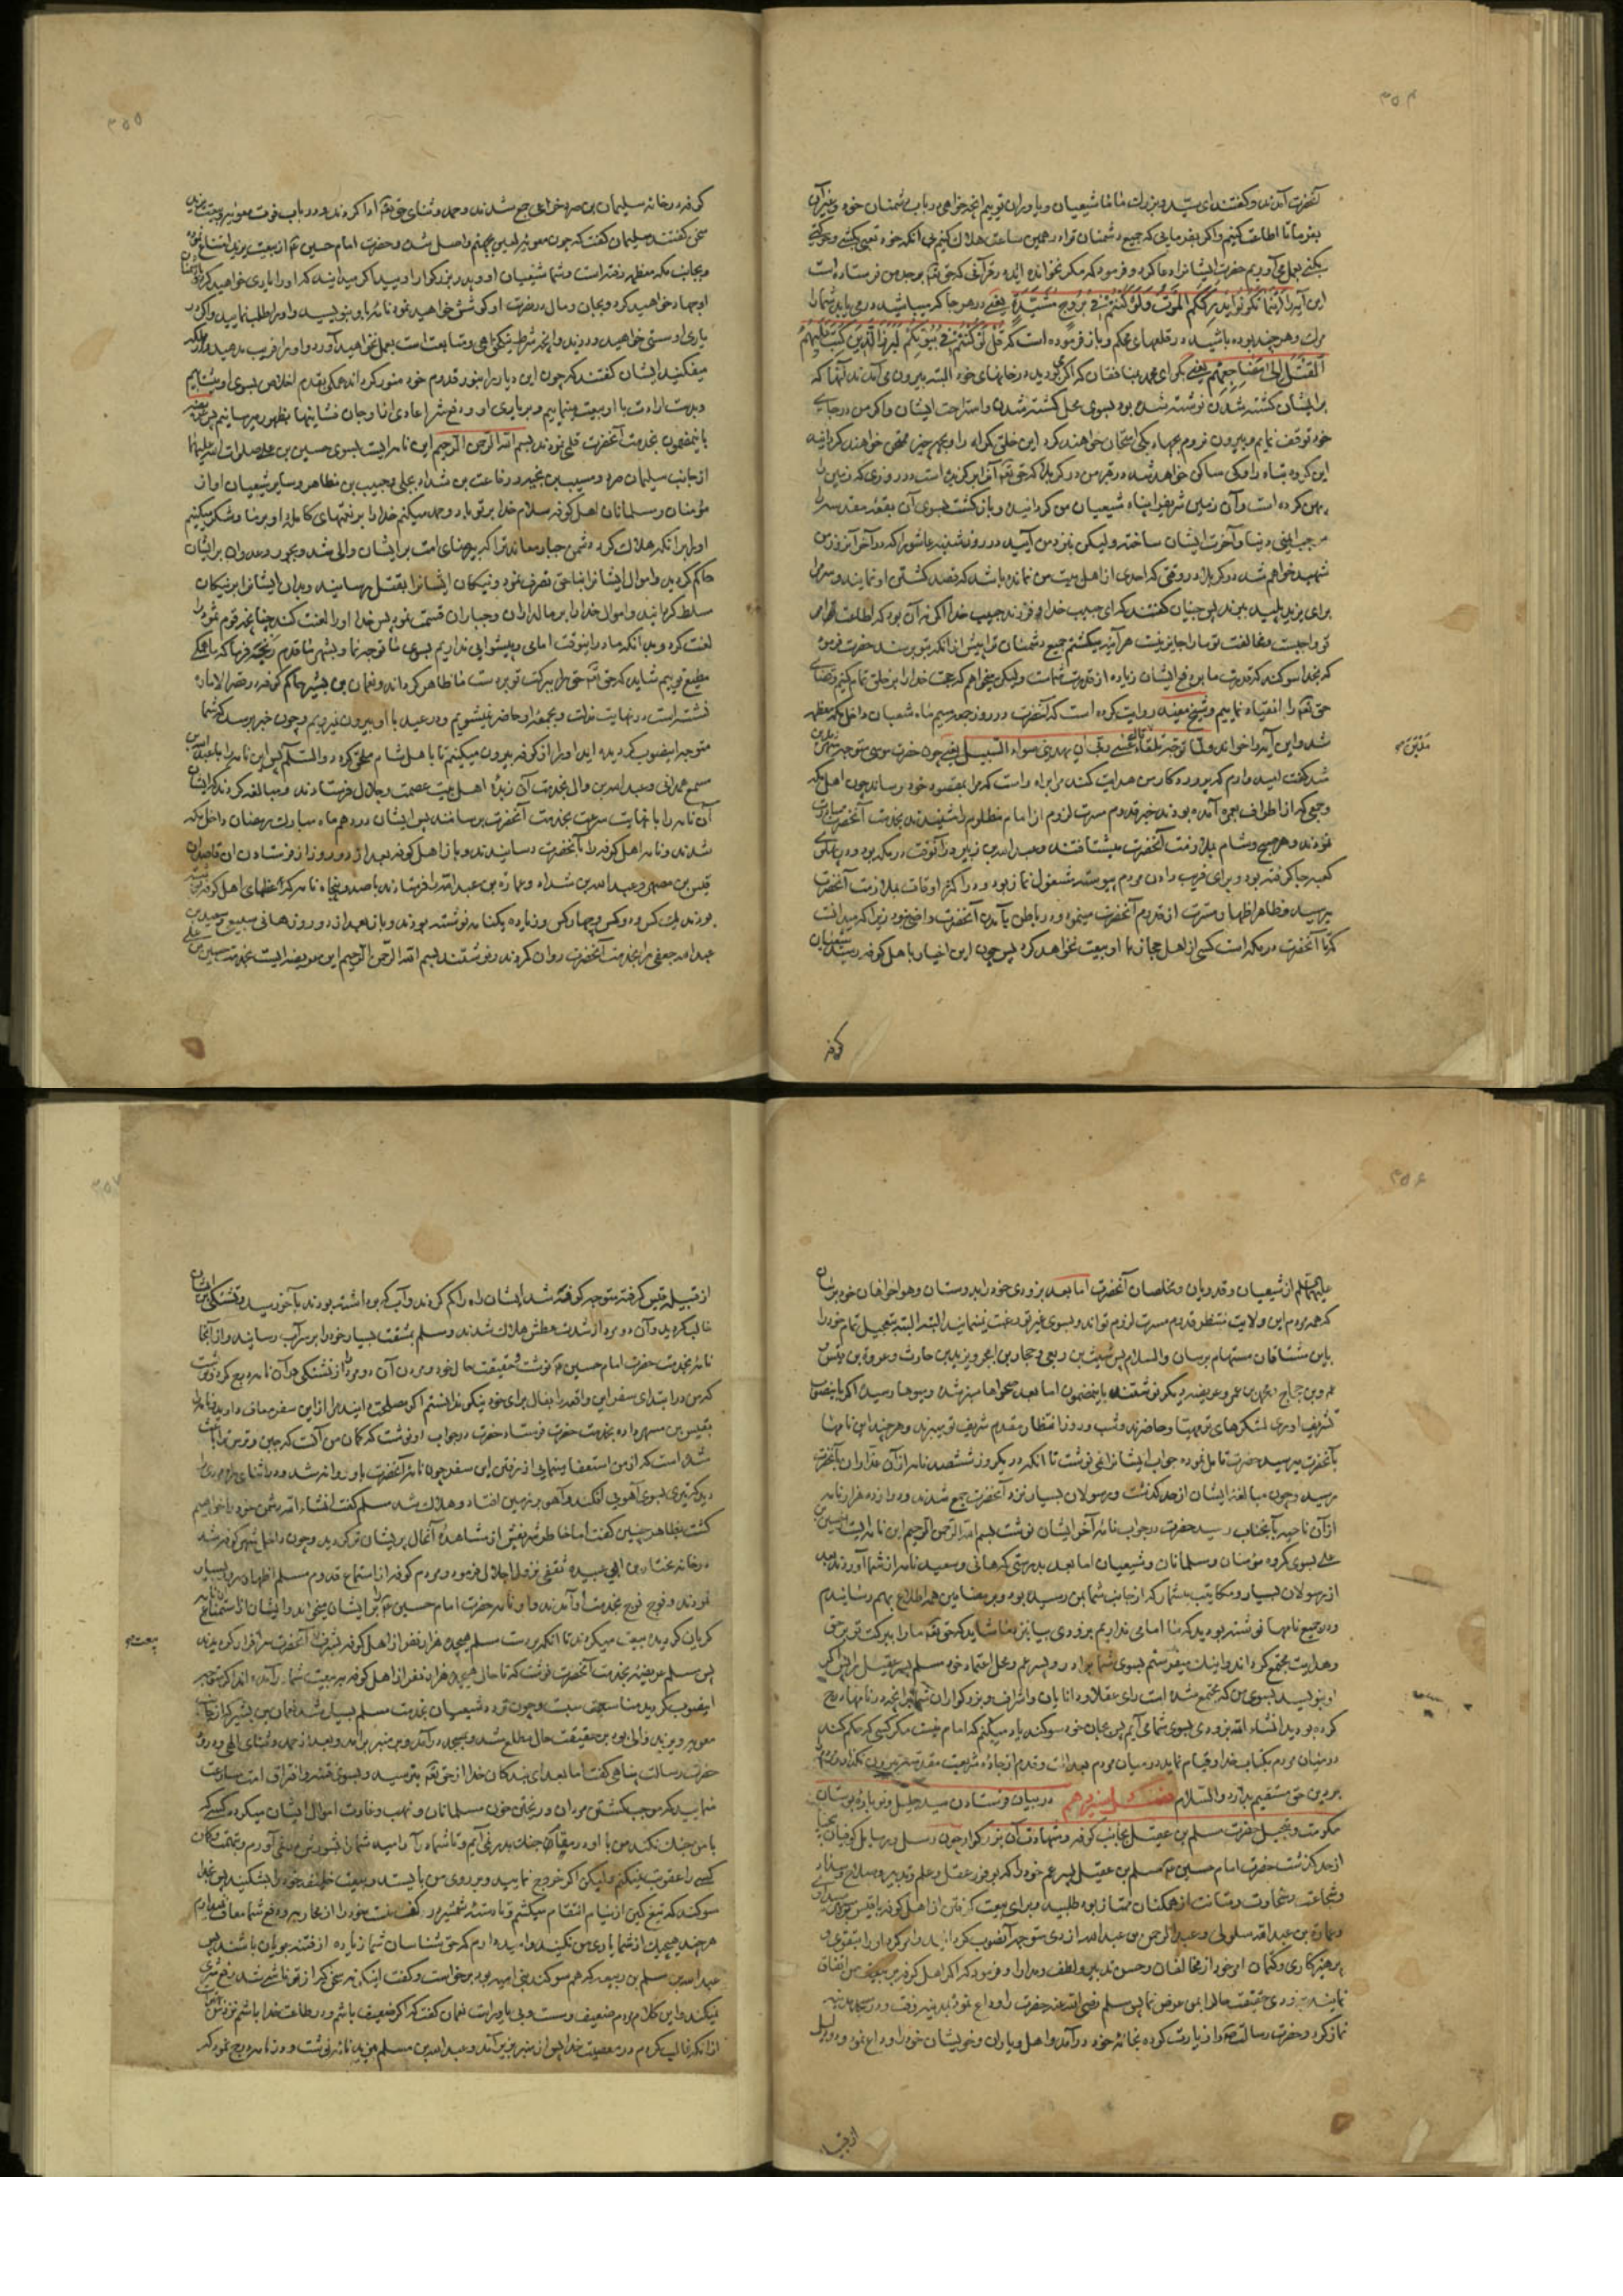 ۳۵۴
آنحضرت آمدند و گفتند ای سید و بزرگ ما ما شیعیان و یاوران توییم آنچه خواهی در باب دشمنان خود و غیر آن
بفرما تا اطاعت کنیم و اگر بفرمایی که جمیع دشمنان ترا در همین ساعت هلاک کنیم بی آنکه خود تعبی بکشی و حرکتی
بکنی بعمل می‌آوریم حضرت ایشانرا دعا کرد و فرمود که مگر نخوانده‌اید در قرآنی که حق تعالی بر جد من فرستاده است
این آیه را اینما تکونوا یدرککم الموت ولو کنتم فی بروج مشیدة یعنی در هر جا که میباشید در می‌یابد شما را
مرگ و هر چند بوده باشید در قلعهای محکم و باز فرموده است که قل لو کنتم فی بیوتکم لبرز الذین کتب علیهم
القتل الی مضاجعهم یعنی بگو ای محمد بمنافقان که اگر می‌بودید در خانهای خود البته بیرون می‌آمدند آنها که
بر ایشان کشته شدن نوشته شده بود بسوی محل کشته شدن و استراحت ایشان و اگر من در جای
خود توقف نمایم و بیرون نروم بجهاد بکی امتحان خواهند کرد این خلق گمراه را و بچه چیز ممتحن خواهند گردانید
این گروه تباه را و کی ساکن خواهد شد در قبر من در کربلا که حق تعالی آنرا برگزیده است در روزی که زمین را
پهن کرده است و آن زمین شریف را پناه شیعیان من گردانیده و بازگشت بسوی آن بقعه مقدسه را
موجب ایمنی دنیا و آخرت ایشان ساخته ولیکن نزد من آیید در روز شنبه عاشورا که در آخر آنروز من
شهید خواهم شد در کربلا در وقتی که احدی از اهل بیت من نمانده باشد که قصد کشتن او نمایند و سر مرا
برای یزید پلید ببرند پس جنیان گفتند که ای حبیب خدا و فرزند حبیب خدا اگر نه آن بود که اطاعت امر
تو واجبست و مخالفت تو ما را جایز نیست هر آینه میکشتیم جمیع دشمنان ترا پیش از آنکه بتو برسند حضرت فرمود
که بخدا سوگند که قدرت ما بر دفع ایشان زیاده از قدرت شماست ولیکن میخواهم که حجت خدا را بر خلق تمام کنم و قضای
حق تعالی را انقیاد نماییم و شیخ مفید روایت کرده است که آنحضرت در روز جمعه سیم ماه شعبان داخل مکه معظمه
شد و این آیه را خواند و لما توجه تلقاء مدین قال عسی ربی ان یهدینی سواء السبیل یعنی چون حضرت موسی متوجه شهر مدین
شد گفت امید دارم که پروردگار من هدایت کند مرا براه راست که مرا بمقصود خود برساند چون اهل مکه
و جمعی که از اطراف بعمره آمده بودند خبر قدوم مسرت لزوم آن امام مظلوم را شنیدند بخدمت آنحضرت مبادرت
نمودند و هر صبح و شام بملازمت آنحضرت میشتافتند و عبدالله بن زبیر در آنوقت در مکه بود و در پهلوی
کعبه جا گرفته بود و برای فریب دادن مردم پیوسته مشغول نماز بود و در اکثر اوقات بملازمت آنحضرت
میرسید و بظاهر اظهار مسرت از قدوم آنحضرت مینمود و در باطن بآمدن آنحضرت راضی نبود زیرا که میدانست
که تا آنحضرت در مکه است کسی از اهل حجاز با او بیعت نخواهد کرد پس چون این اخبار باهل کوفه رسید شیعیان
کوفه
۳۵۵
کوفه در خانه سلیمان بن صرد خزاعی جمع شدند و حمد و ثنای حق تعالی ادا کردند و در باب فوت معویه و بیعت یزید
سخن گفتند سلیمان گفت که چون معویه لعین بجهنم واصل شد و حضرت امام حسین ع از بیعت یزید امتناع نموده
و بجانب مکه معظمه رفته است و شما شیعیان او و پدر بزرگوار او یید اگر میدانید که او را یاری خواهید کرد و با دشمنان
او جهاد خواهید کرد و بجان و مال در نصرت او کوشش خواهید نمود نامه باو بنویسید و او را طلب نمایید و اگر در
یاری او سستی خواهید ورزید و آنچه شرط نیکخواهی و متابعت است بعمل نخواهید آورد او را فریب مدهید و در مهلکه
میفکنید ایشان گفتند که چون این دیار را بنور قدوم خود منور گرداند همگی بقدم اخلاص بسوی او میشتابیم
و بدست ارادت با او بیعت مینماییم و در یاری او و دفع شر اعادی او مال و جان فشانیها بظهور میرسانیم پس عریضه
باینمضمون بخدمت آنحضرت قلمی نمودند بسم الله الرحمن الرحیم این نامه ایست بسوی حسین بن علی صلوات الله علیهما
از جانب سلیمان صرد و مسیب بن نجیه و رفاعه بن شداد بجلی و حبیب بن مظاهر و سایر شیعیان او از
مؤمنان و مسلمانان اهل کوفه سلام خدا بر تو باد و حمد میکنیم خدا را بر نعمتهای کامله او بر ما و شکر میکنیم
او را بر آنکه هلاک کرد دشمن جبار معاند ترا که بی‌رضای امت بر ایشان والی شد و بجور و عدوان بر ایشان
حاکم گردید و اموال ایشانرا بناحق تصرف نمود و نیکان ایشانرا بقتل رسانید و بدان ایشانرا بر نیکان
مسلط گردانید و اموال خدا را بر مالداران و جباران قسمت نمود پس خدا او را لعنت کند چنانچه قوم ثمود را
لعنت کرد و بدانکه ما در اینوقت امامی و پیشوایی نداریم بسوی ما توجه نما و بشهر ما قدم رنجه فرما که ما همگی
مطیع توییم شاید که حق تعالی حق را ببرکت تو بر دست ما ظاهر گرداند و نعمان بن بشیر حاکم کوفه در قصر الاماره
نشسته است در نهایت مذلت و بجمعه او حاضر نمیشویم و در عید با او بیرون نمیرویم و چون خبر برسد که شما
متوجه اینصوب گردیده‌اید او را از کوفه بیرون میکنیم تا باهل شام ملحق گردد والسلام پس این نامه را با عبدالله بن
مسمع همدانی و عبدالله بن وال بخدمت آن زبدۀ اهل بیت عصمت و جلال فرستادند و مبالغه کردند که ایشان
آن نامه را با نهایت سرعت بخدمت آنحضرت برسانند پس ایشان در دهم ماه مبارک رمضان داخل مکه
شدند و نامه اهل کوفه را بآنحضرت رسانیدند و باز اهل کوفه بعد از دو روز از فرستادن آن قاصدان
قیس بن مصهر و عبدالله بن شداد و عماره بن عبدالله را فرستادند با صد و پنجاه نامه که عظمای اهل کوفه نوشته
بودند یک کس و دو کس و چهار کس و زیاده یکنامه نوشته بودند و باز بعد از دو روز هانی سبیعی و سعید بن
عبدالله جعفی را بخدمت آنحضرت روان کردند و نوشتند بسم الله الرحمن الرحیم این عریضه ایست بخدمت حسین بن علی
۳۵۶
علیهما السلام از شیعیان و فدویان و مخلصان آنحضرت اما بعد بزودی خود را بدوستان و هواخواهان خود برسان
که همه مردم این ولایت منتظر قدوم مسرت لزوم تواند و بسوی غیر تو رغبت نمینمایند البته البته بتعجیل تمام خود را
باین مشتاقان مستهام برسان والسلام پس شبث بن ربعی و حجار بن ابجر و یزید بن حارث و عروة بن قیس
و عمرو بن حجاج و محمد بن عمرو عریضه دیگر نوشتند باینمضمون اما بعد صحراها سبز شده و میوها رسیده اگر باینصوب
تشریف آوری لشکرهای تو مهیا و حاضرند و شب و روز انتظار مقدم شریف تو میبرند و هر چند این نامها
بآنحضرت میرسید حضرت تامل نموده جواب ایشانرا نمی‌نوشت تا آنکه در یکروز ششصد نامه از آن غداران بآنحضرت
رسید و چون مبالغه ایشان از حد گذشت و رسولان بسیار نزد آنحضرت جمع شدند و دوازده هزار نامه
از آن ناحیه بآنجناب رسید حضرت در جواب نامه آخر ایشان نوشت بسم الله الرحمن الرحیم این نامه ایست از حسین بن
علی بسوی گروه مؤمنان و مسلمانان و شیعیان اما بعد بدرستی که هانی و سعید نامه از شما آوردند بعد
از رسولان بسیار و مکاتیب بیشمار که از جانب شما بمن رسیده بود و بر مضامین همه اطلاع بهم رسانیدم
و در جمیع نامها نوشته بودید که ما امامی نداریم بزودی بیا بنزد ما شاید که حق تعالی ما را ببرکت تو بر حق
و هدایت مجتمع گرداند و اینک میفرستم بسوی شما برادر و پسر عم و محل اعتماد خود مسلم پسر عقیل را پس اگر
او بنویسد بسوی من که مجتمع شده است رای عقلا و دانایان و اشراف و بزرگواران شما بر آنچه در نامها درج
کرده بودید انشاء الله بزودی بسوی شما می‌آیم پس بجان خود سوگند یاد میکنم که امام نیست مگر کسی که حکم کند
در میان مردم بکتاب خدا و قیام نماید در میان مردم بعدالت و قدم از جاده شریعت مقدسه بیرون نگذارد و مردم را
بر دین حق مستقیم بدارد والسلام فصل سیزدهم در بیان فرستادن سید جلیل
حضرت مسلم بن عقیل بجانب کوفه و شهادت آن بزرگوار چون رسل و رسایل کوفیان بیوفا
از حد گذشت حضرت امام حسین ع مسلم بن عقیل پسر عم خود را که بوفور عقل و علم و تدبیر و صلاح و سداد
و شجاعت و سخاوت و متانت از همگنان ممتاز بود طلبید و برای بیعت گرفتن از اهل کوفه با قیس بن مصهر صیداوی
و عماره بن عبدالله سلولی و عبدالرحمن بن عبدالله ازدی متوجه آنصوب گردانید و امر کرد او را بتقوی و
پرهیزکاری و کتمان امر خود از مخالفان و حسن تدبیر و لطف و مدارا و فرمود که اگر اهل کوفه بر بیعت من اتفاق
نمایند بزودی حقیقت حال را بمن عرض نما پس مسلم رضی الله عنه حضرت را وداع نموده بمدینه رفت و در مسجد مدینه
نماز کرد و حضرت رسالت را زیارت کرده بخانه خود درآمد و اهل و یاران و خویشان خود را وداع نمود و دو دلیل
از قبیله
۳۵۷
از قبیله قیس گرفته متوجه کوفه شد ایشان راه را گم کردند و آب که برداشته بودند بآخر رسید و تشنگی بر ایشان
غالب گردید و آن دو مرد از شدت عطش هلاک شدند و مسلم بمشقت بسیار خود را بر سر آب رسانید و از آنجا
نامه بخدمت حضرت امام حسین ع نوشت و حقیقت حال خود و مردن آن دو مرد را از تشنگی در آن نامه درج کرد و نوشت
که من در ابتدای سفر این واقعه را بفال برای خود نیکو ندانستم اگر مصلحت دانید مرا از این سفر معاف دارید و نامه را
بقیس بن مسهر داده بخدمت حضرت فرستاد حضرت در جواب او نوشت که گمان من آنست که جبن و ترس ترا باعث
شده است که از من استعفا مینمایی از رفتن این سفر چون نامه آنحضرت باو رسید روانه شد و در اثنای راه مردی را
دید که تیری بسوی آهویی افکند و آهو بر زمین افتاد و هلاک شد مسلم گفت انشاء الله دشمن خود را خواهیم
کشت بظاهر چنین گفت اما خاطر شریفش از مشاهدۀ آنحال پریشان‌تر گردید و چون داخل شهر کوفه شد
در خانه مختار بن ابی عبیده ثقفی نزول اجلال فرمود و مردم کوفه از استماع قدوم مسلم اظهار سرور بسیار
نمودند و فوج فوج بخدمت او آمدند و او نامه حضرت امام حسین ع را بر ایشان میخواند و ایشان از استماع نامه
گریان گردیده بیعت میکردند تا آنکه بر دست مسلم هیجده هزار نفر از اهل کوفه بشرف بیعت آنحضرت سرافراز گردیدند
پس مسلم عریضه بخدمت آنحضرت نوشت که تا حال هیجده هزار نفر از اهل کوفه به بیعت شما درآمده‌اند اگر متوجه
اینصوب گردید مناسبست و چون تردد شیعیان بخدمت مسلم بسیار شد نعمان بن بشیر که از جانب
معویه و یزید والی بود بر حقیقت حال مطلع شد و بمسجد درآمد و بر منبر برآمد و بعد از حمد و ثنای الهی و درود
حضرت رسالت پناهی گفت اما بعد ای بندگان خدا از حق تعالی بترسید و بسوی فتنه و افتراق امت مسارعت
منمایید که موجب کشتن مردان و ریختن خون مسلمانان و نهب و غارت اموال ایشان میگردد کسی که
با من جنگ نکند من با او در مقام جنگ بدر نمی‌آیم و تا شما در آرامید شما را بشورش در نمی‌آورم و بتهمت و گمان
کسی را عقوبت نمیکنم ولیکن اگر خروج نمایید و بر روی من بایستید و بیعت خلیفه خود را بشکنید پس بخدا
سوگند که تیغ کین از نیام انتقام میکشم و تا دسته شمشیر در کف منست خود را از محاربه و دفع شما معاف نمیدارم
هر چند هیچیک از شما یاری من نکنید و امیدوارم که حق شناسان شما زیاده از فتنه جویان باشند پس
عبدالله بن مسلم بن ربیعه که هم سوگند بنی امیه بود برخواست و گفت این سخن که از تو ناشی شد دفع شر
نمیکند و این کلام مردم ضعیف و سست و بی یاورانست نعمان گفت که اگر ضعیف باشم و در طاعت خدا باشم نزد من بهتر است
از آنکه غالب گردم و در معصیت خدا پس از منبر بزیر آمد و عبدالله بن مسلم بیزید نامه نوشت و در نامه درج نمود که